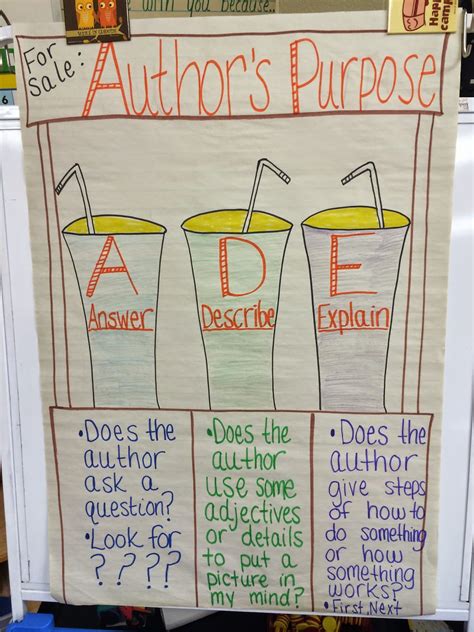 with you because..
Happy
camp
For
Sale:
Author's Purpose
A
Answer
D
Describe
E
Explain
• Does the
author
ask a
question?
• Look for
? ? ? ?
• Does the
author
use some
adjectives
or details
to put a
picture in
my mind?
• Does the
author
give steps
of how to
do something
or how
something
works?
• First, Next